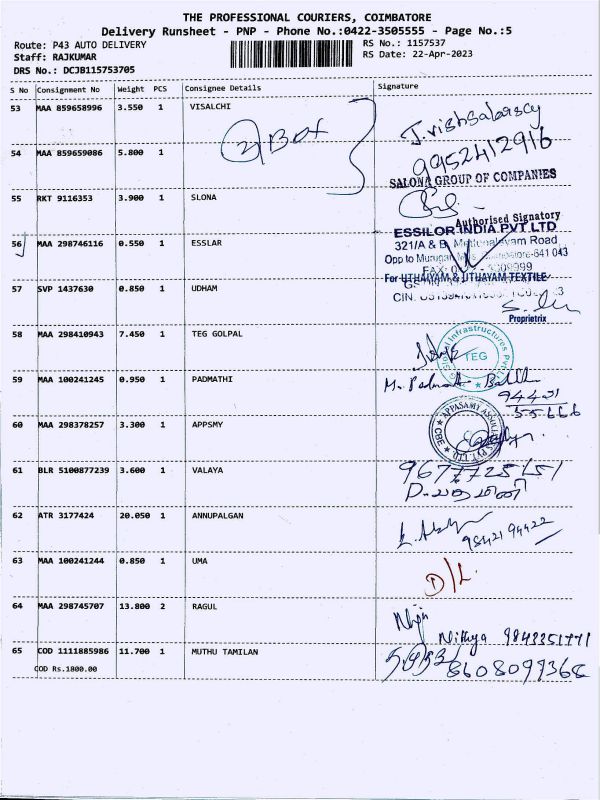 THE PROFESSIONAL COURIERS, COIMBATORE
Delivery Runsheet - PNP - Phone No.:0422-3505555 - Page No.:5
Route: P43 AUTO DELIVERY
RS No.: 1157537
Staff: RAJKUMAR
RS Date: 22-Apr-2023
DRS No.: DCJB115753705
S No Consignment No Weight PCS Consignee Details Signature
53 MAA 859658996 3.550 1 VISALCHI
2 Box
9952412916
54 MAA 859659086 5.800 1
SALONA GROUP OF COMPANIES
55 RKT 9116353 3.900 1 SLONA
Authorised Signatory
ESSILOR INDIA PVT LTD
56 MAA 298746116 0.550 1 ESSLAR
321/A & B, Mettupalayam Road
For UTHAIYAM & UTHAYAM TEXTILE
57 SVP 1437630 0.850 1 UDHAM
Proprietrix
58 MAA 298410943 7.450 1 TEG GOLPAL
TEG
59 MAA 100241245 0.950 1 PADMATHI
94421
55666
60 MAA 298378257 3.300 1 APPSMY
61 BLR 5100877239 3.600 1 VALAYA
9677725151
62 ATR 3177424 20.050 1 ANNUPALGAN
9842194422
63 MAA 100241244 0.850 1 UMA
D/L.
64 MAA 298745707 13.800 2 RAGUL
Nithya 9843351771
65 COD 1111885986 11.700 1 MUTHU TAMILAN
8608099368
COD Rs.1800.00